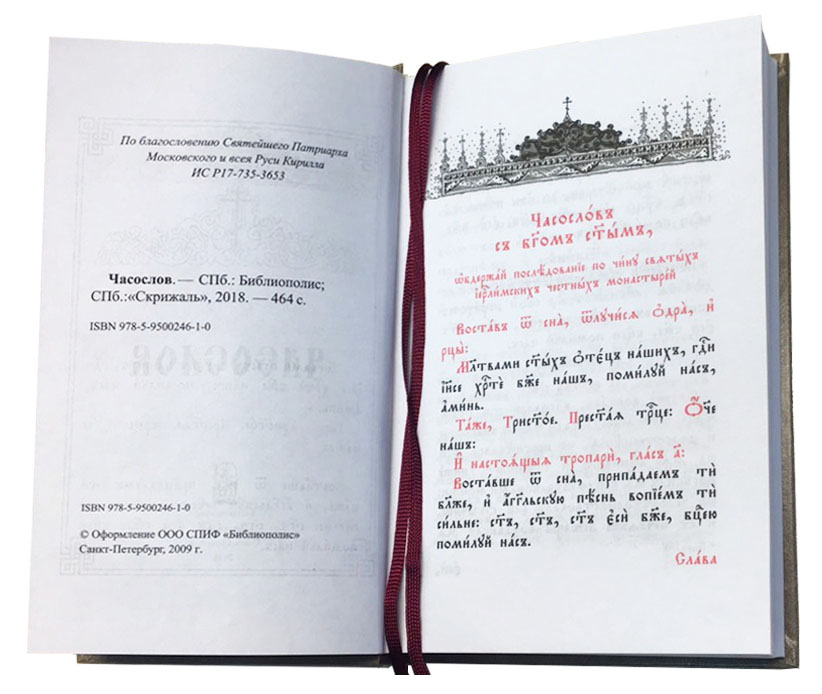 По благословению Святейшего Патриарха
Московского и всея Руси Кирилла
ИС Р17-735-3653
Часослов. — СПб.: Библиополис;
СПб.:«Скрижаль», 2018. — 464 с.
ISBN 978-5-9500246-1-0
ISBN 978-5-9500246-1-0
© Оформление ООО СПИФ «Библиополис»
Санкт-Петербург, 2009 г.
Часосло́въ
съ бг҃омъ ст҃ы́мъ,
ѡ҆бдержа́й послѣ́дованїе по чи́ну свѧты́хъ
і҆ерⷭ҇ли́мскихъ че́стныхъ монастыре́й
Воста́въ ѿ сна̀, ѿлучи́сѧ ѻ҆дра̀, и҆
рцы̀:
Мл҃твами ст҃ы́хъ ѻ҆тє́цъ на́шихъ, гдⷭ҇и
і҆и҃се хрⷭ҇тѐ бж҃е на́шъ, поми́луй на́съ,
а҆ми́нь.
Та́же, Трист҃о́е. Прест҃а́ѧ трⷪ҇це: Ѻ҆́ч҃е
на́шъ:
И҆ настоѧ́щыѧ тропари̑, гла́съ а҃:
Воста́вше ѿ сна̀, припа́даемъ тѝ
бл҃же, и҆ а҆́гг҃льскую пѣ́снь вопїе́мъ тѝ
си́льне: ст҃ъ, ст҃ъ, ст҃ъ є҆сѝ бж҃е, бцⷣею
поми́луй на́съ.
Сла́ва